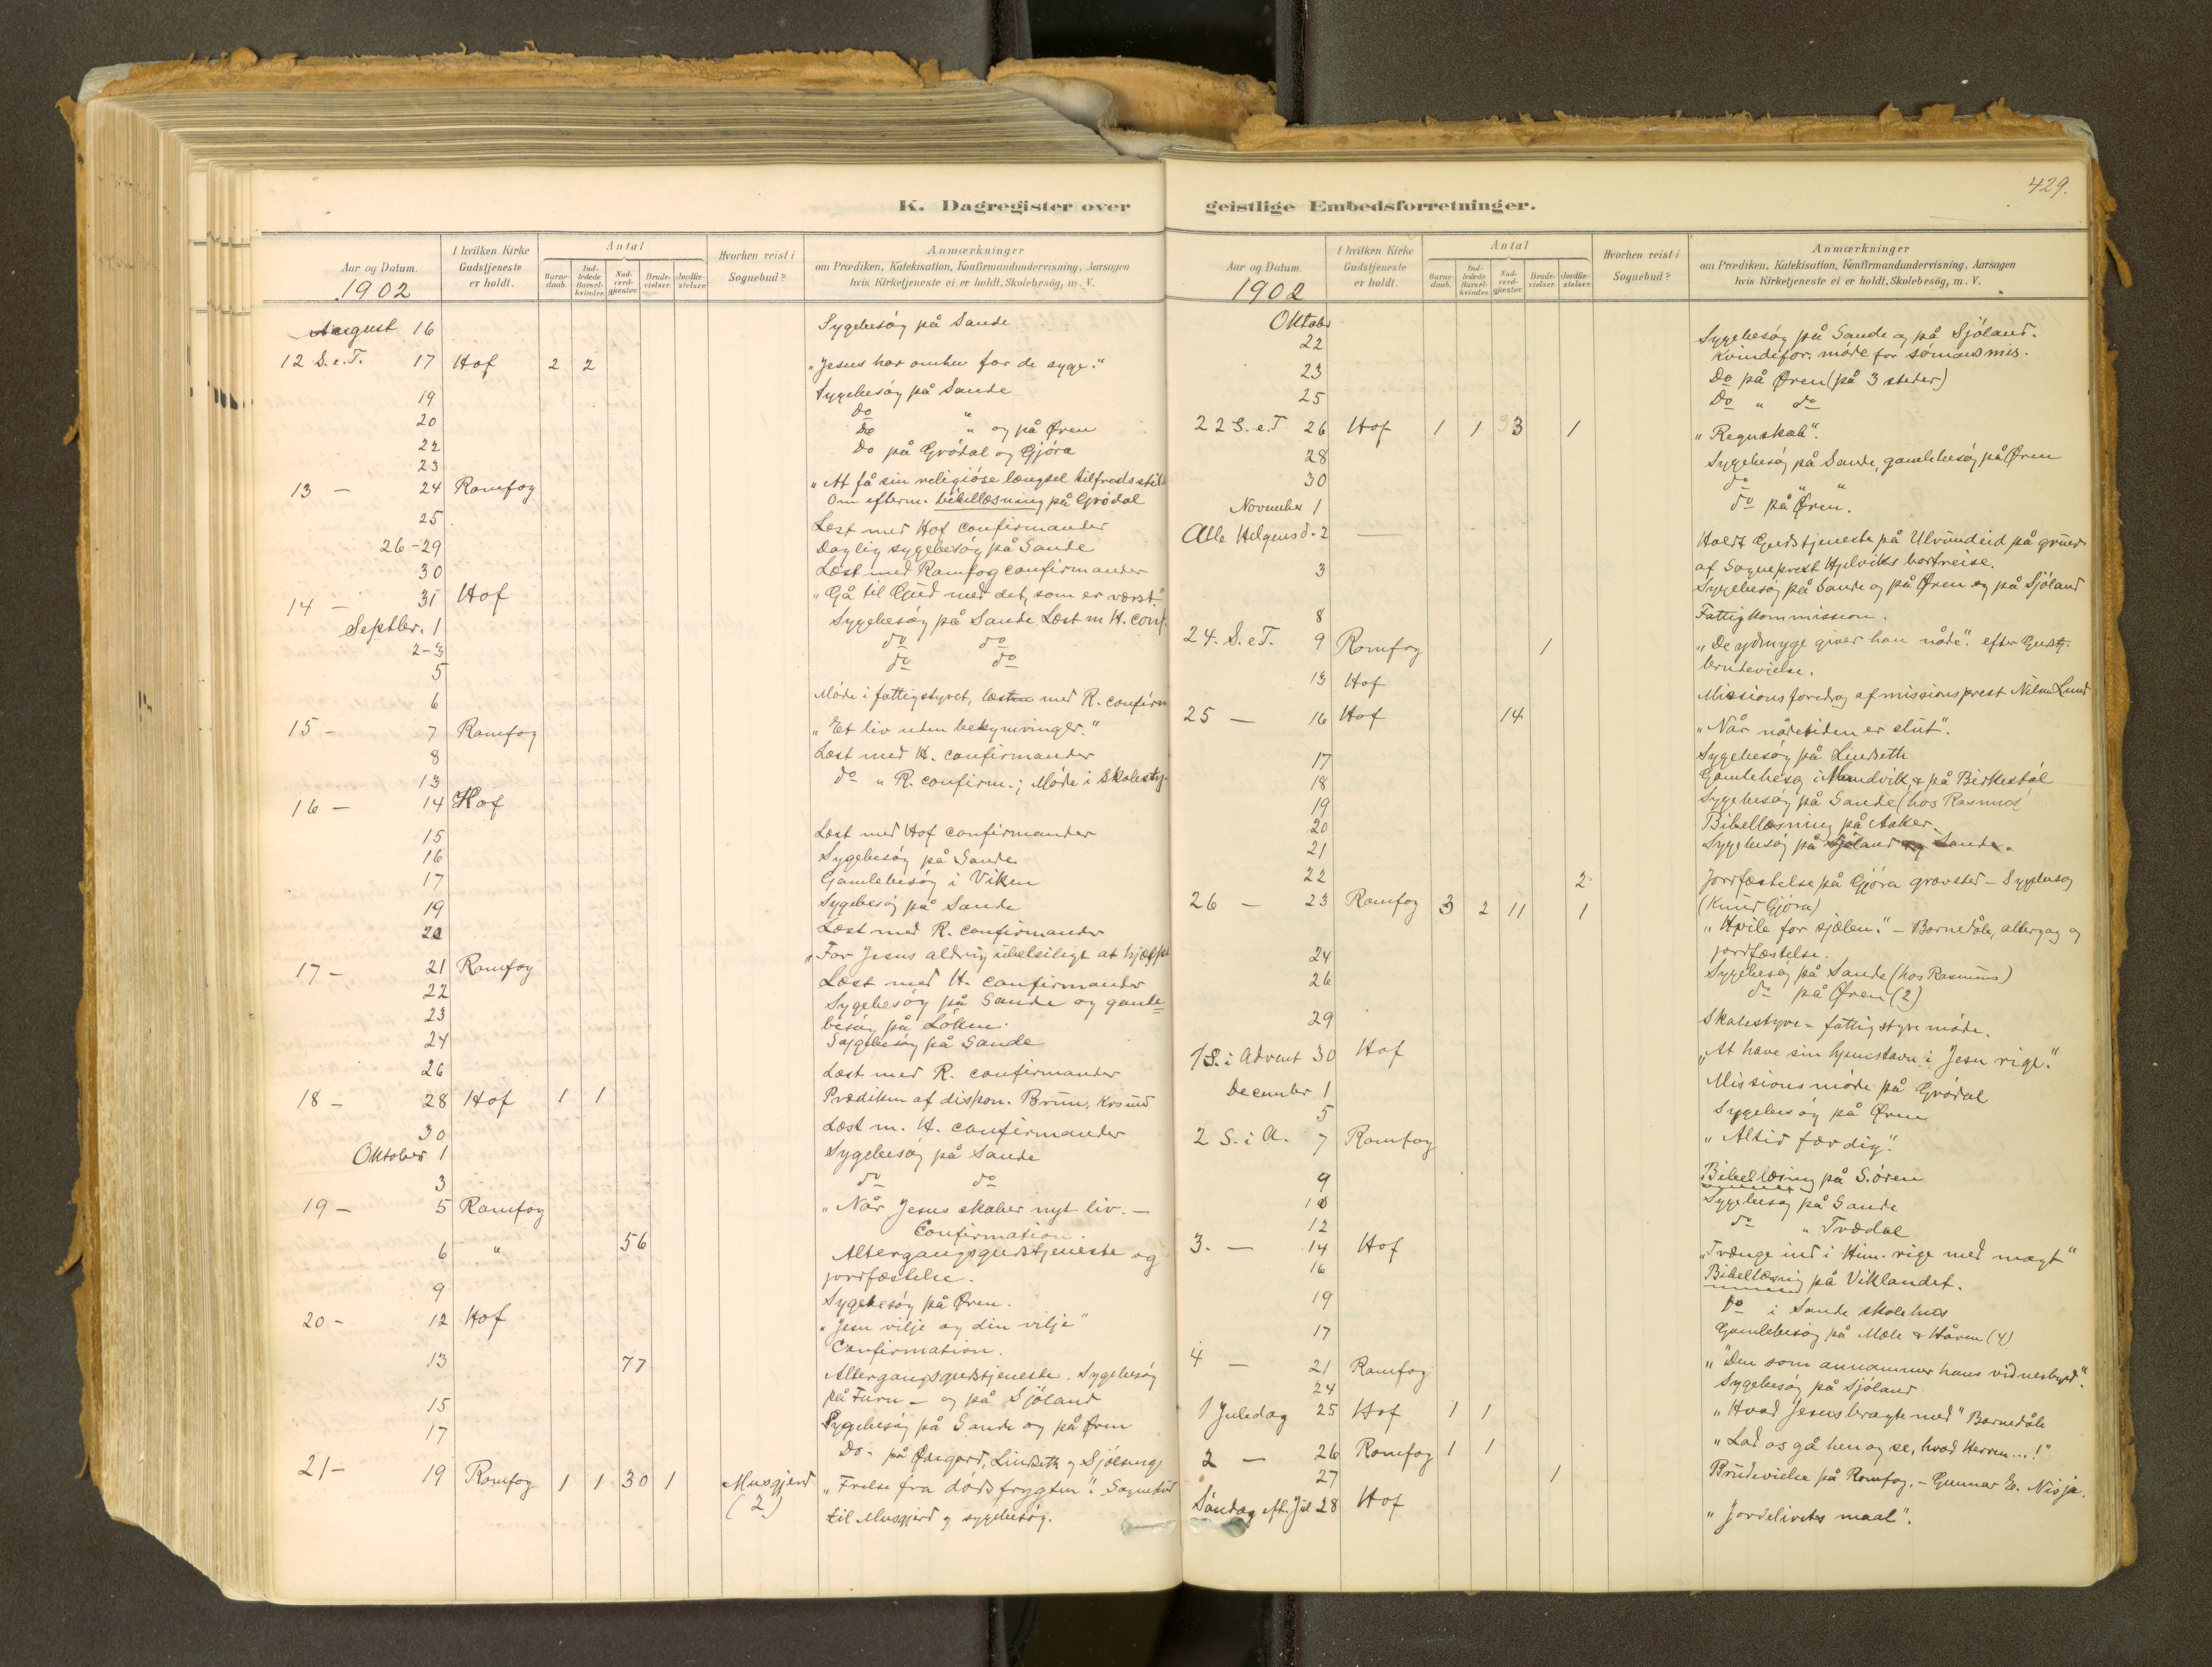 K. Dagregister over
Aar og Datum.
1902
I hvilken Kirke Gudstjeneste er holdt.
Antal
Barnedaab. Indledede Barselkvinder. Nadverdgjester. Brudevielser. Jordfæstelser.
Hvorhen reist i Sognebud?
Anmærkninger
om Prædiken, Katekisation, Konfirmandundervisning, Aarsagen
hvis Kirketjeneste ei er holdt, Skolebesög, m. V.
August 16 Sygebesög på Sande
12 S. e. T. 17 Hof 2 2 "Jesus har omhu for de syge."
19 Sygebesög på Sande
20 do "
22 Do " og på Øren
23 Do på Grödal og Gjöra
13 — 24 Romfog "At få sin religiöse længsel tilfredsstil
Om efterm. bibellæsning på Grödal
25 Læst med Hof confirmander
26-29 Daglig sygebesög på Sande
30 Læst med Romfog confirmander
14 — 31 Hof "Gå til Gud med det, som er værst."
Septbr. 1 Sygebesög på Sande. Læst m H. conf.
2-3 do do
5 do do
6 Möde i fattigstyret, læsten med R. confirm
15 - 7 Romfog "Et liv uden bekymringer."
8 Læst med H. confirmander
13 do " R. confirm.; Möde i skolesty.
16 — 14 Hof
15 Læst med Hof confirmander
16 Sygebesög på Sande
17 Gamlebesög i Viken
19 Sygebesög på Sande
20 Læst med R. confirmander
17 - 21 Romfog "For Jesus aldrig ubeleiligt at hjælpe
22 Læst med H. confirmander
23 Sygebesög på Sande og gamle=
besög på Löken.
24 Sygebesög på Sande
26 Læst med R. confirmander
18 - 28 Hof 1 1 Prædiken af dispon. Brun, Krsund
30 Læst m. H. confirmander
Oktober 1 Sygebesög på Sande
3 do do
19 - 5 Romfog "Når Jesus skaber nyt liv. —
Confirmation.
6 " 56 Altergangsgudstjeneste og
jordfæstelse.
9 Sygebesög på Øren.
20 - 12 Hof "Jesu vilje og din vilje"
Confirmation.
13 77 Altergangsgudstjeneste. Sygebesög
på Furu - og på Sjöland
15 Sygebesög på Sande og på Øren
17 Do. på Ødegård, Lindseth og
21 - 19 Romfog 1 1 30 1 Musgjerd (2) "Frelse fra dödsfrygten". Sognebud
til Musgjerd og sygebesög.
429.
geistlige Embedsforretninger.
Aar og Datum.
1902
I hvilken Kirke Gudstjeneste er holdt.
Antal
Barnedaab. Indledede Barselkvinder. Nadverdgjester. Brudevielser. Jordfæstelser.
Hvorhen reist i Sognebud?
Anmærkninger
om Prædiken, Katekisation, Konfirmandundervisning, Aarsagen
hvis Kirketjeneste ei er holdt, Skolebesög, m. V.
Oktober
22 Sygebesög på Sande og på Sjöland.
Kvindefor. möde for sömansmis.
23 Do på Øren (på 3 steder)
25 Do " do
22 S. e. T 26 Hof 1 1 33 1 "Regnskab".
28 Sygebesög på Sande, gamlebesög på Øren
30 do " "
November 1 do på Øren.
Alle Helgensd. 2 — Holdt Gudstjeneste på Ulvundeid på grund
af Sogneprest Hjelviks bortreise.
3 Sygebesög på Sande og på Øren og på Sjöland
8 Fattigkommission.
24. S. e T. 9 Romfog 1 "De ydmyge giver han nåde". efter Gudstj.
brudevielse.
13 Hof Missionsforedrag af missionsprest Nilsen Lund
25 — 16 Hof 14 "Når nådetiden er slut".
17 Sygebesög på Lindseth
18 Gamlebesög i & på Birkestöl
19 Sygebesög på Sande (hos Rasmus
20 Bibellæsning på Aaker
21 Sygebesög på Sjöland og Sande.
22 2 Jordfæstelse på Gjöra gravsted - Sygebesög
(Knud Gjöra)
26 — 23 Romfog 3 2 11 1 "Hvile for sjælen." - Barnedåb, altergag og
jordfæstelse.
24 Sygebesög på Sande (hos Rasmus)
26 do på Øren (2)
29 Skolestyre- fattigstyremöde.
1 S. i Advent 30 Hof "At have sin hjemstavn i Jesu rige."
December 1 Missionsmöde på Grödal
5 Sygebesög på Øren
2 S. i A. 7 Romfog "Altid færdig".
9 Bibellæsning på S.ören
10 Sygebesög på Sande
12 do " Trædal
3. — 14 Hof "Trænge ind i Him. rige med magt"
16 Bibellæsnig på Viklandet.
19 Do i Sande skolehus
17 Gamlebesög på Mæle & Håven (4)
4 — 21 Romfog "Den som annammer hans vidnesbyrd".
24 Sygebesög på Sjöland
1 Juledag 25 Hof 1 1 "Hvad Jesus bragte med" Barnedåb
2 — 26 Romfog 1 1 "Lad os gå hen og se, hvad Herren...!"
27 1 Brudevielse på Romfog. - Gunnar E. Nisja.
Söndag eft. Jul 28 Hof "Jordelivets maal".